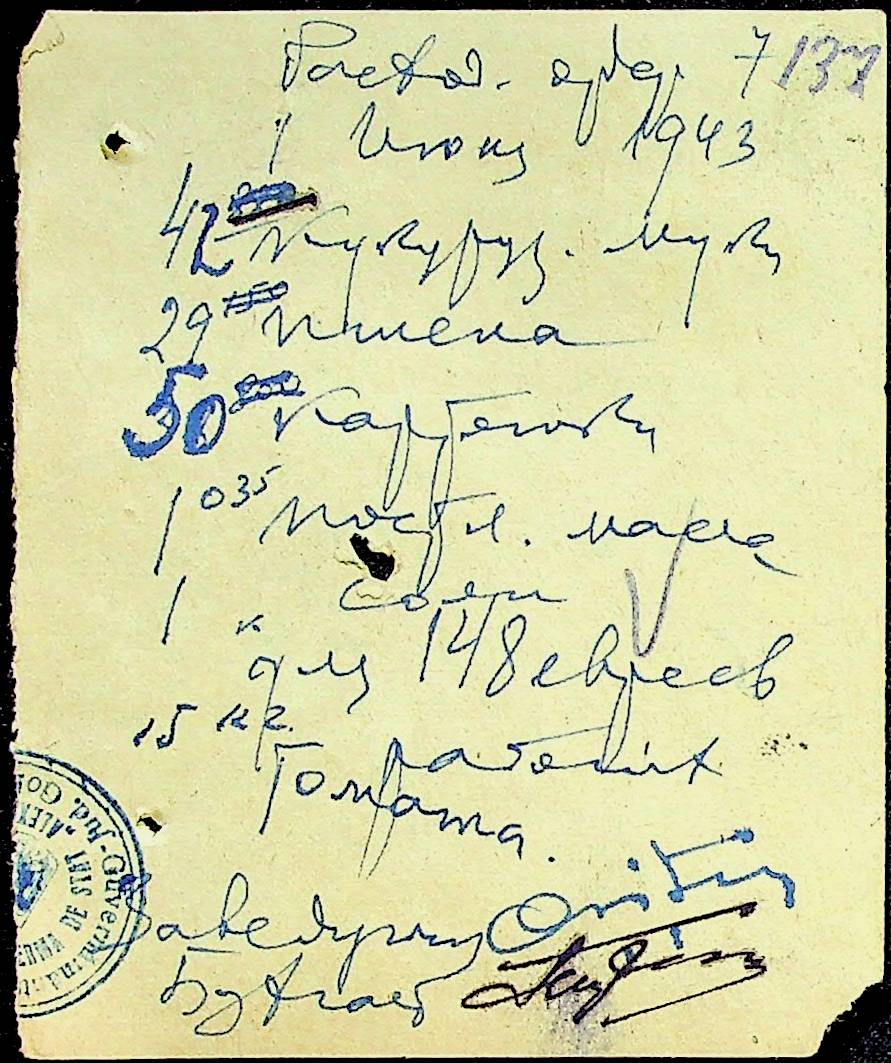 Расход. ордер 7 137
1 Июня 1943
42 Кукуруз. муки
29 Пшена
50 Картошки
1 035 Постн. масла
1 к Соли
для 148 евреев
15 кг. рабочих
Томата.
Заведующий
Бухгалт
Jud.
Guvernământ
DE STAT